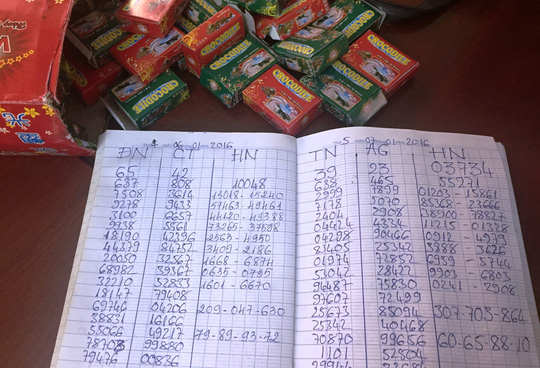 CROCODILE
CROCODILE
CROCODILE
CROCODILE
CROCODILE
CROCODILE
4 06 - 01 - 2016
ĐN CT HN
65 42
637 808 10048
7508 3614 13048 - 15240
9278 9433 57463 - 49461
3100 0657 44120 - 43388
9738 5561 73265 - 37598
18190 42396 2563 - 4950
44379 84752 3409 - 2186
20050 32567 1668 - 6874
68982 39367 0635 - 0795
32210 52833 1601 - 6670
18147 79408
69746 04206 209 - 047 - 630
38831 16166
55066 49217 79 - 89 - 93 - 72
78703 99880
79476 00836
5 07 - 01 - 2016
TN AG HN
39 25 03734
638 465 55271
2999 7899 01203 - 15861
7178 5070 85368 - 23666
2404 2908 38900 - 73827
04424 4334 11215 - 01328
04298 90466 3221 - 4979
83405 25342 3988 - 3626
01974 72852 6959 - 5744
53042 28422 9903 - 6803
94487 75830 0241 - 2908
97607 72499
25673 85094 307 - 703 - 864
25342 40468
70870 99656 60 - 65 - 88 - 10
1101 52804